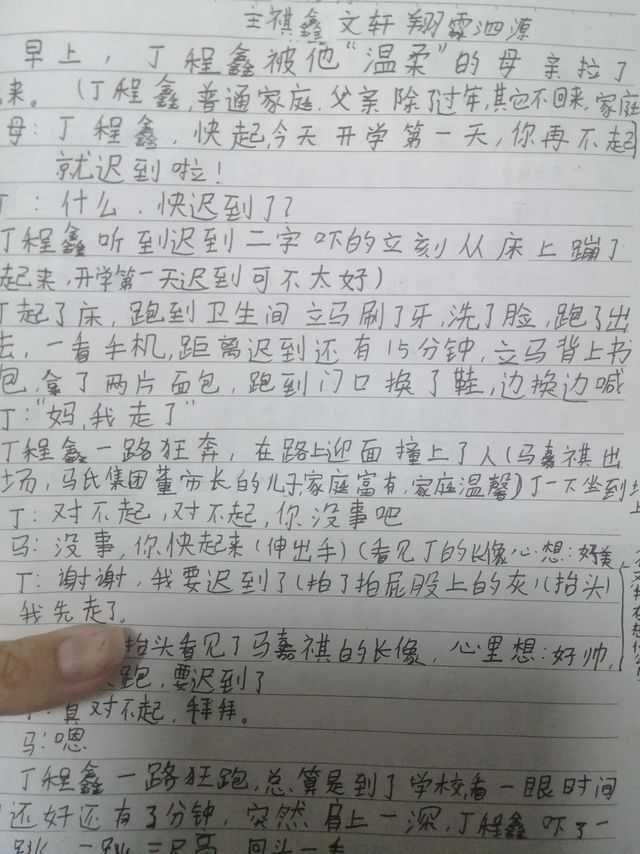 主祺鑫 文轩 翔霖泗源
早上，丁程鑫被他“温柔”的母亲拉了
来。（丁程鑫，普通家庭.父亲除了过年，其它不回来，家庭
母：丁程鑫，快起，今天开学第一天，你再不起
就迟到啦！
丁：什么.快迟到了？
丁程鑫听到迟到二字吓的立刻从床上蹦了
起来，开学第一天迟到可不太好）
丁起了床，跑到卫生间立马刷了牙，洗了脸，跑了出
去，一看手机，距离迟到还有15分钟，立马背上书
包，拿了两片面包，跑到门口换了鞋，边换边喊
丁：“妈，我走了”
丁程鑫一路狂奔，在路上迎面撞上了人（马嘉祺出
场，马氏集团董市长的儿子，家庭富有，家庭温馨）丁一下坐到地上
丁：对不起，对不起，你没事吧
马：没事，你快起来（伸出手）（看见丁的长像心想：好美
丁：谢谢，我要迟到了（拍了拍屁股上的灰）（抬头）
我先走了。
抬头看见了马嘉祺的长像，心里想：好帅，
跑，要迟到了
真对不起，拜拜。
马：嗯
丁程鑫一路狂跑，总算是到了学校，看一眼时间
还好还有3分钟，突然肩上一深，丁程鑫吓了一
跳，一跳三尺高，回头一看